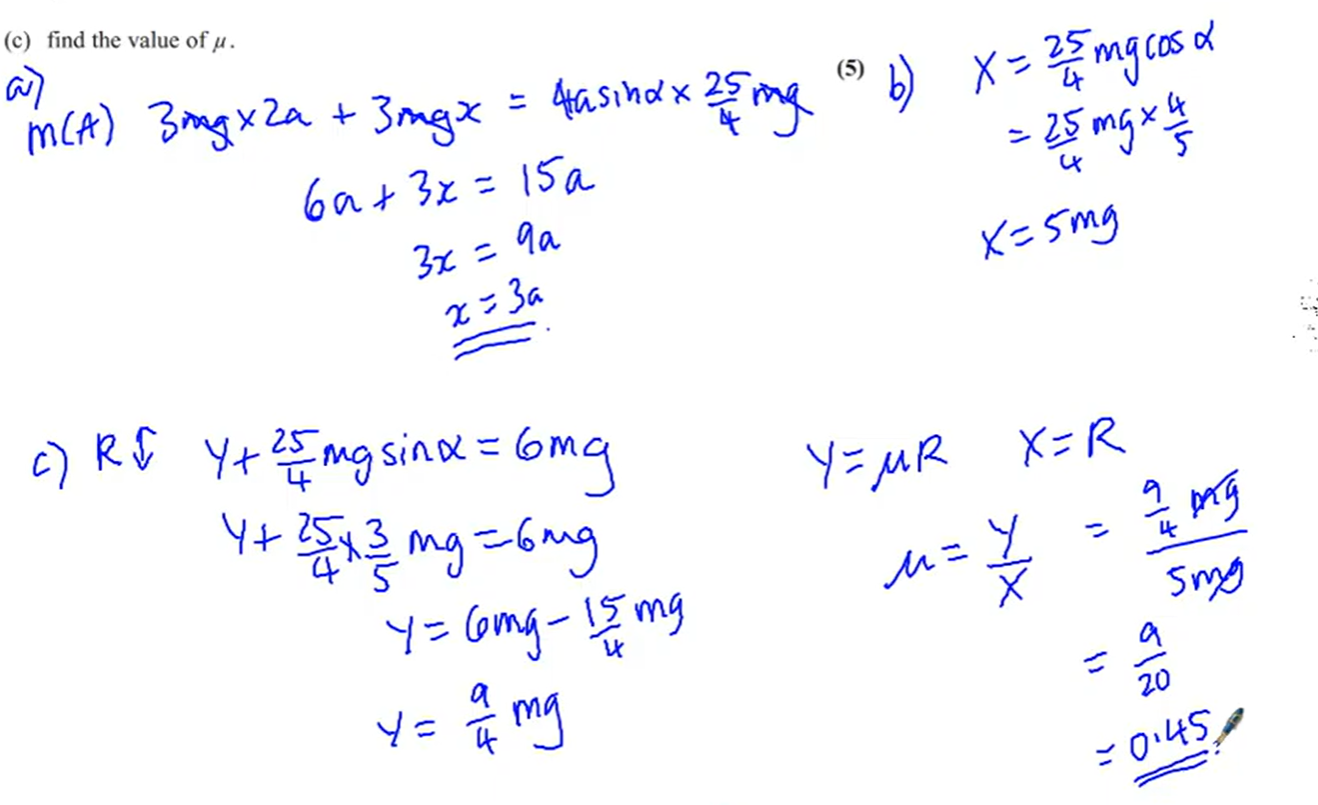 (c) find the value of μ.
(5)
a)
M(A) 3mg×2a + 3mgx = 4a sinα × 25/4 mg
6a + 3x = 15a
3x = 9a
x = 3a
b) X = 25/4 mg cos α
= 25/4 mg × 4/5
X = 5mg
c) R↕ Y + 25/4 mg sinα = 6mg
Y + 25/4 × 3/5 mg = 6mg
Y = 6mg − 15/4 mg
Y = 9/4 mg
Y = μR X = R
μ = Y/X = 9/4 mg / 5mg
= 9/20
= 0.45